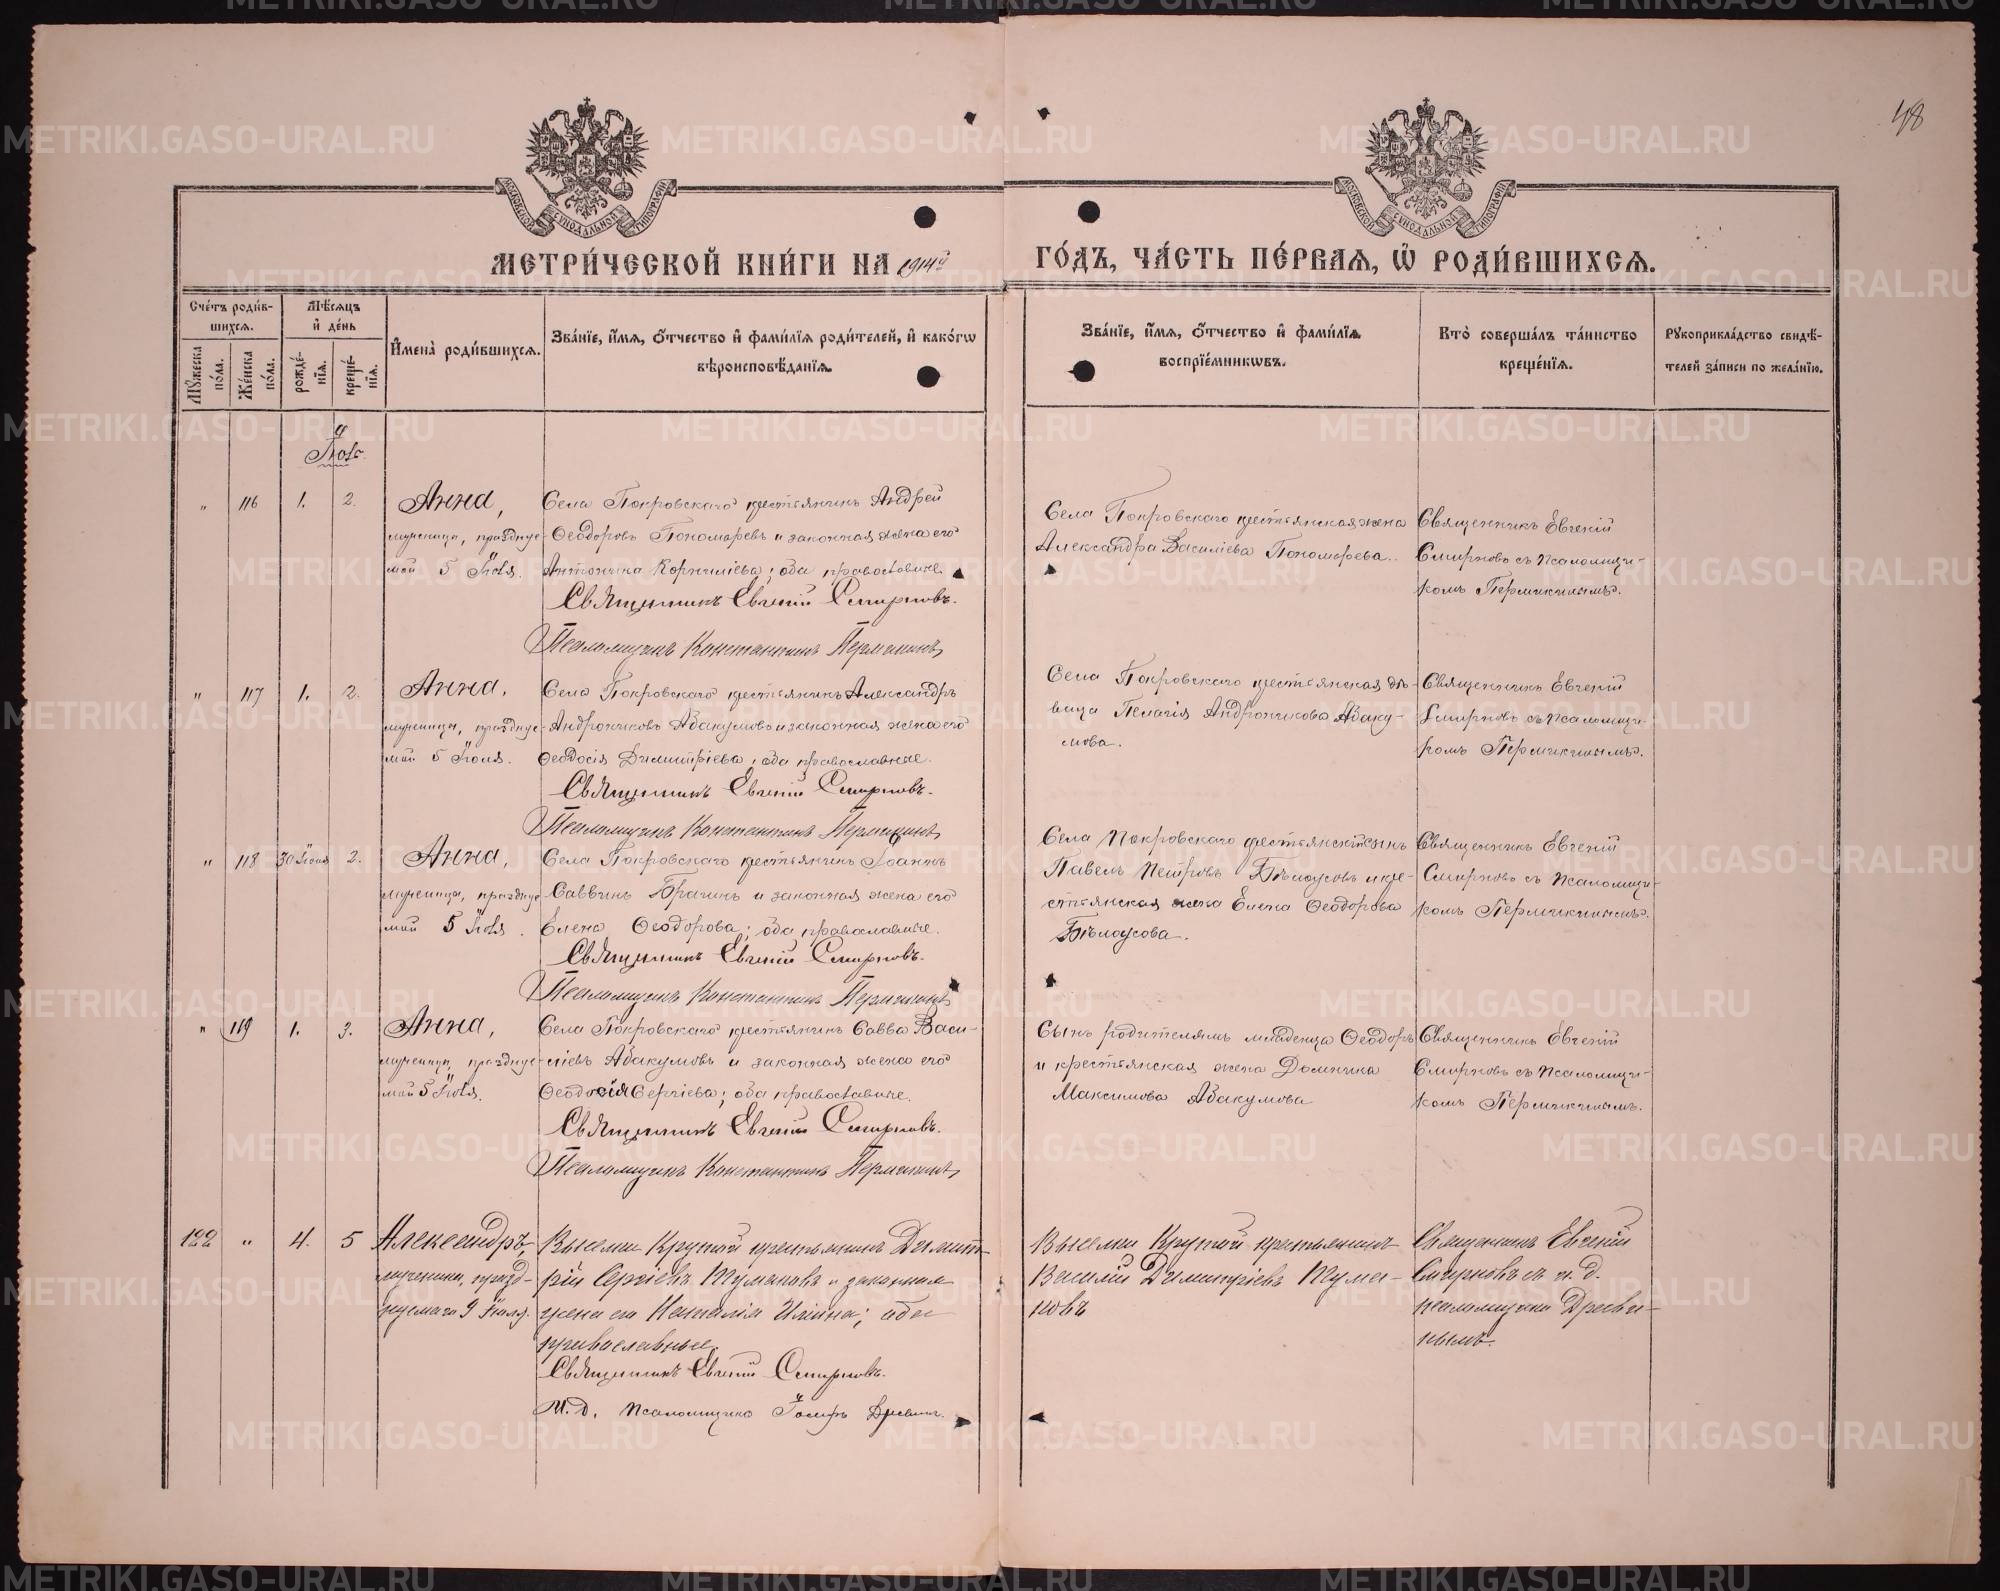 48
МОСКОВСКОЙ СѴНОДАЛЬНОЙ ТИПОГРАФІИ
МОСКОВСКОЙ СѴНОДАЛЬНОЙ ТИПОГРАФІИ
МЕТРИ́ЧЕСКОЙ КНИ́ГИ НА 1914й ГО́ДЪ, ЧА́СТЬ ПЕ́РВАЯ, Ѡ҆ РОДИ́ВШИХСЯ.
Сче́тъ роди́в-
шихся.
Мѣ́сяцъ
и҆ де́нь
Мꙋ́жеска по́ла.
Же́нска по́ла.
рожде́-
нїя.
креще́-
нїя.
И҆мена̀ роди́вшихся.
Зва́нїе, и҆́мя, ѻ҆́тчество и҆ фами́лїя роди́телей, и҆ како́гѡ
вѣроисповѣ́данїя.
Зва́нїе, и҆́мя, ѻ҆́тчество и҆ фами́лїя
воспрїе́мникѡвъ.
Кто̀ соверша́лъ та́инство
креще́нїя.
Рꙋкоприкла́дство свидѣ́-
телей за́писи по жела́нїю.
Іюль
" 116 1. 2. Анна,
мученицы, празднуе-
мой 5 Іюля.
Села Покровскаго крестьянинъ Андрей
Ѳеодоровъ Пономаревъ и законная жена его
Антонина Корнилієва; оба православные.
Священникъ Евгеній Смирновъ.
Псаломщикъ Константинъ Пермикинъ
Села Покровскаго крестьянская жена
Александра Василіева Пономарева.
Священникъ Евгеній
Смирновъ съ псаломщи-
комъ Пермикинымъ.
" 117 1. 2. Анна,
мученицы, празднуе-
мой 5 Іюля.
Села Покровскаго крестьянинъ Александръ
Андрониковъ Абакумовъ и законная жена его
Ѳеодосія Димитріева; оба православные.
Священникъ Евгеній Смирновъ.
Псаломщикъ Константинъ Пермикинъ
Села Покровскаго крестьянская дѣ-
вица Пелагія Андроникова Абаку-
мова.
Священникъ Евгеній
Смирновъ съ псаломщи-
комъ Пермикинымъ.
" 118 30 Іюня 2. Анна,
мученицы, празднуе-
мой 5 Іюля.
Села Покровскаго крестьянинъ Іоаннъ
Саввинъ Брагинъ и законная жена его
Елена Ѳеодорова; оба православные.
Священникъ Евгеній Смирновъ.
Псаломщикъ Константинъ Пермикинъ
Села Покровскаго крестьянскій сынъ
Павелъ Петровъ Бѣлоусовъ и кре-
стьянская жена Елена Ѳеодорова
Бѣлоусова.
Священникъ Евгеній
Смирновъ съ псаломщи-
комъ Пермикинымъ.
" 119 1. 3. Анна,
мученицы, празднуе-
мой 5 Іюля.
Села Покровскаго крестьянинъ Савва Васи-
ліевъ Абакумовъ и законная жена его
Ѳеодосія Сергіева; оба православные.
Священникъ Евгеній Смирновъ.
Псаломщикъ Константинъ Пермикинъ
Сынъ родителямъ младенца Ѳеодоръ
и крестьянская жена Домника
Максимова Абакумова
Священникъ Евгеній
Смирновъ съ псаломщи-
комъ Пермикинымъ.
122 " 4. 5 Александръ,
мученика, празд-
нуемаго 9 Іюля.
Выселка Крутой крестьянинъ Димит-
рій Сергіевъ Тумановъ и законная
жена его Наталія Ильина; оба
православные.
Священникъ Евгеній Смирновъ.
И. д. псаломщика
Выселка Крутой крестьянинъ
Василій Димитріевъ Тума-
новъ
Священникъ Евгеній
Смирновъ съ и. д.
псаломщика Древи-
нымъ.
METRIKI.GASO-URAL.RU